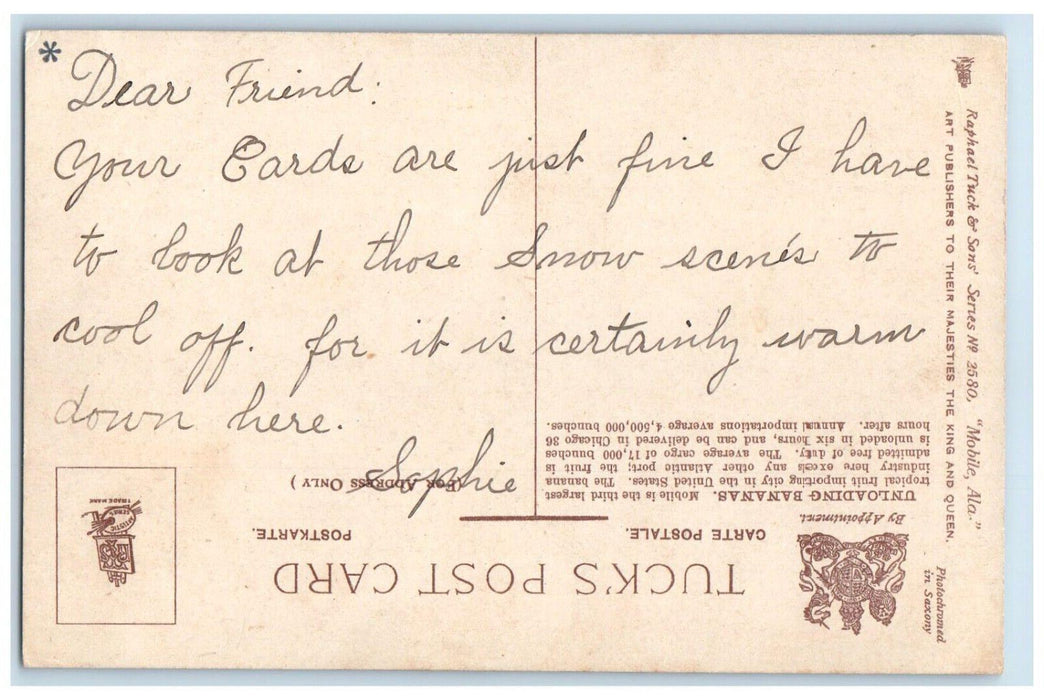 *
Dear Friend:
Your Cards are just fine I have
to look at those Snow scenes to
cool off. for it is certainly warm
down here.
Sophie
TUCK'S POST CARD
CARTE POSTALE.
POSTKARTE.
(FOR ADDRESS ONLY)
By Appointment.
UNLOADING BANANAS. Mobile is the third largest
tropical fruit importing city in the United States. The banana
industry here excels any other Atlantic port; the fruit is
admitted free of duty. The average cargo of 17,000 bunches
is unloaded in six hours, and can be delivered in Chicago 36
hours after. Annual importations average 4,500,000 bunches.
Raphael Tuck & Sons' Series No 2580. "Mobile, Ala."
ART PUBLISHERS TO THEIR MAJESTIES THE KING AND QUEEN.
Photochromed
in Saxony
ARTISTIC
SERIES
TRADE MARK